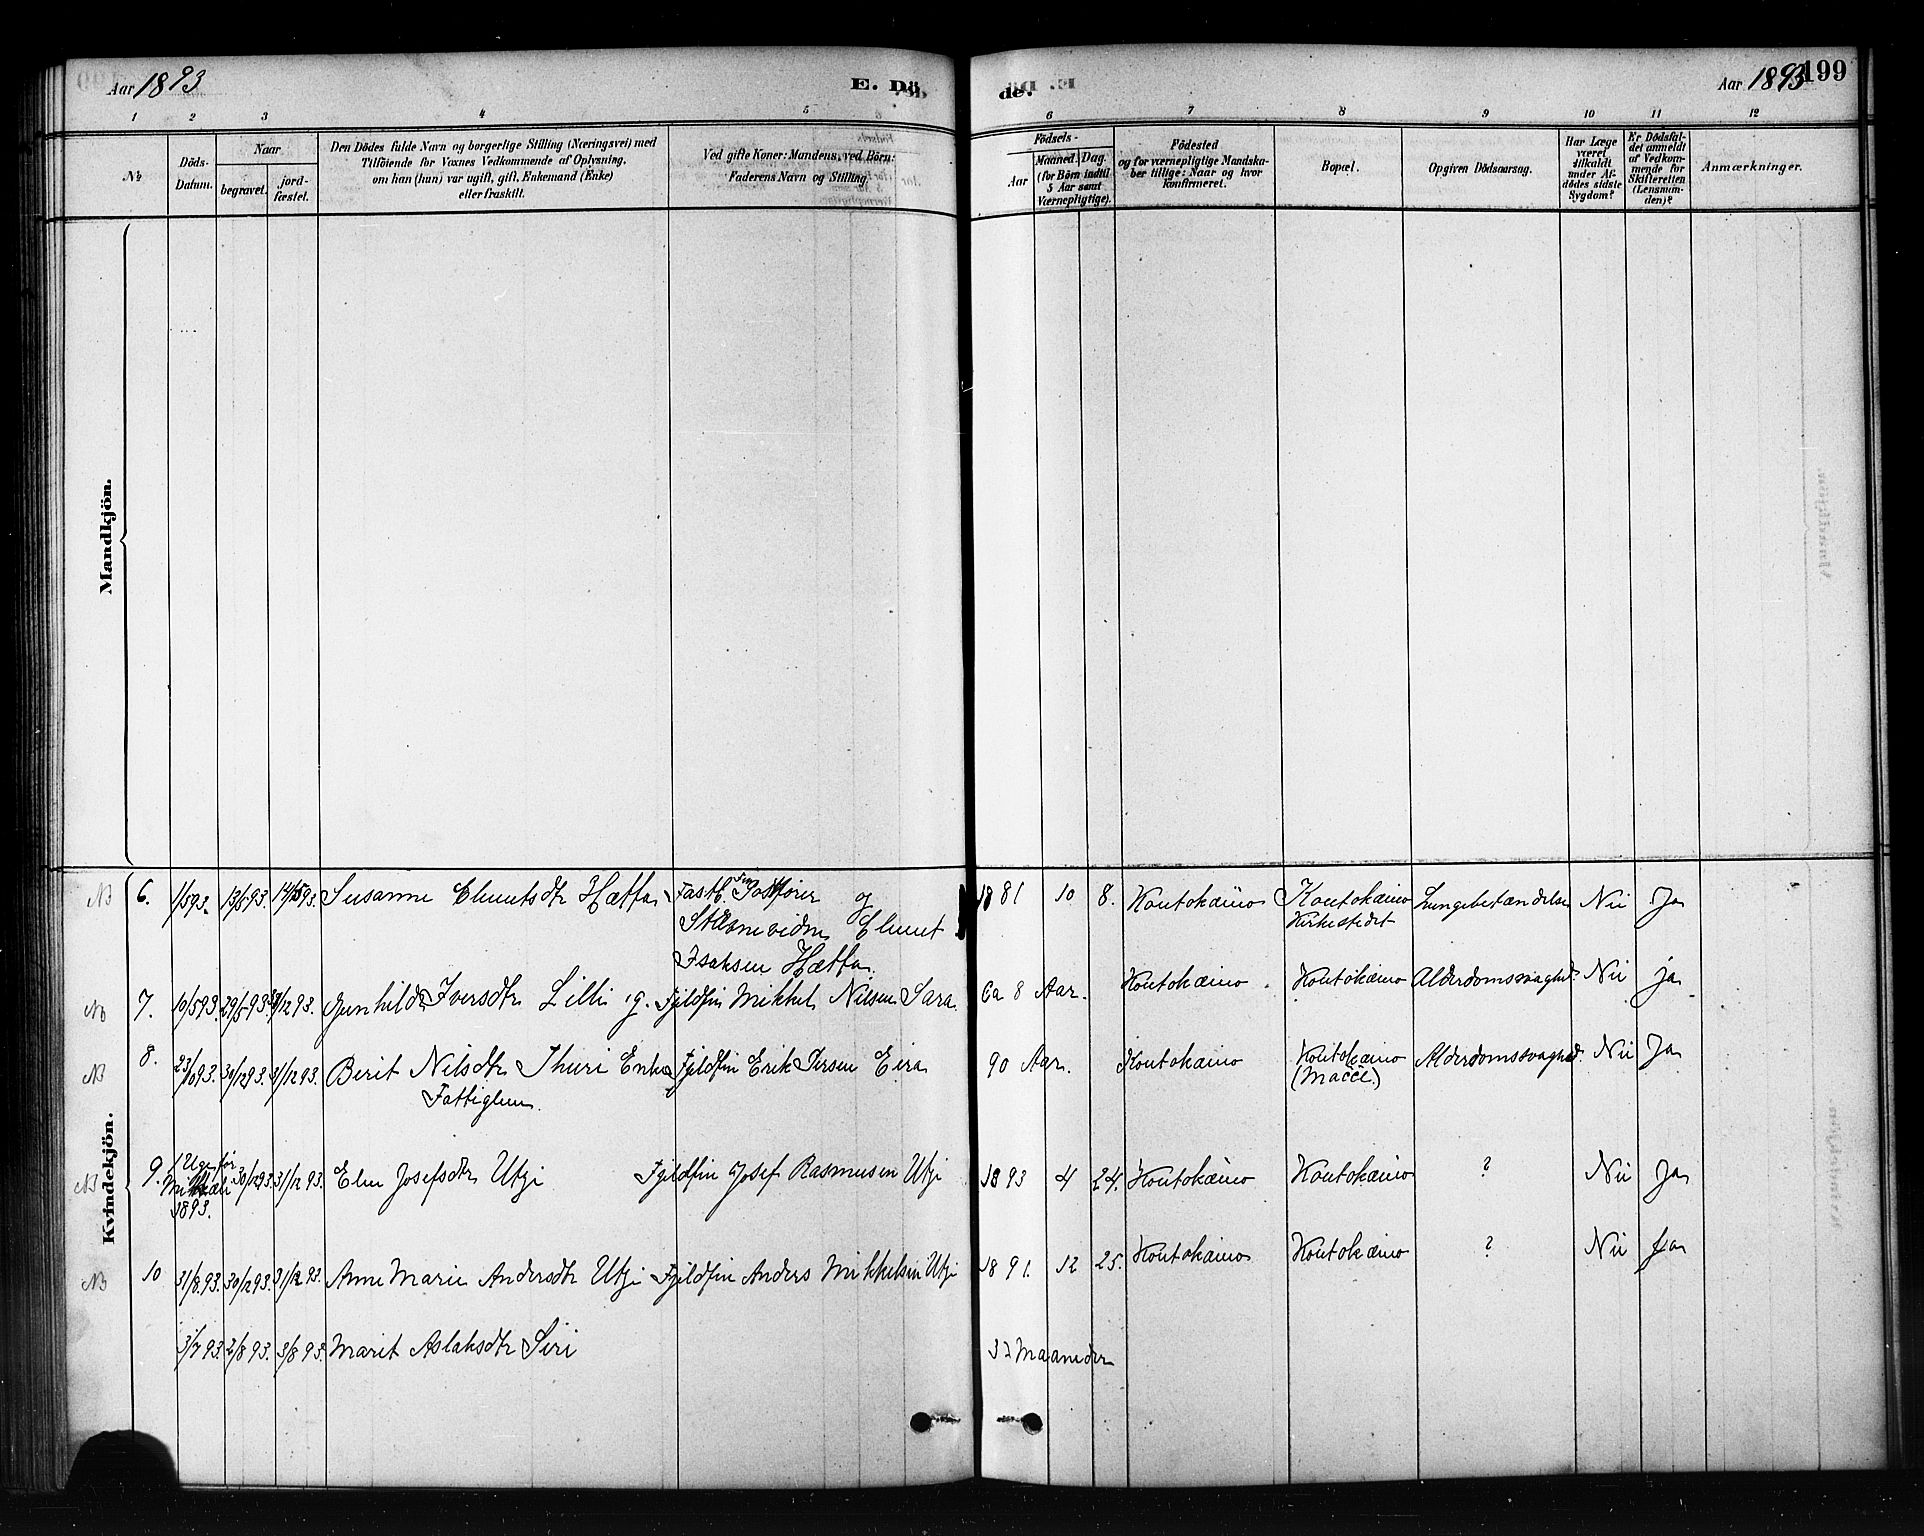 Aar 1893
E. Dö
de.
Aar 1893
199
1 2 3 4 5
6 7 8 9 10 11 12
No
Döds-
Datum.
Naar
begravet.
jord-
fæstet.
Den Dödes fulde Navn og borgerlige Stilling (Næringsvei) med
Tilföiende for Voxnes Vedkommende af Oplysning,
om han (hun) var ugift, gift, Enkemand (Enke)
eller fraskilt.
Ved gifte Koner: Mandens, ved Börn:
Faderens Navn og Stilling.
Födsels-
Aar
Maaned. Dag.
(for Börn indtil
5 Aar samt
Værnepligtige).
Födested
og for værnepligtige Mandska-
ber tillige: Naar og hvor
konfirmeret.
Bopæl.
Opgiven Dödsaarsag.
Har Læge
været
tilkaldt
under Af-
dödes sidste
Sygdom?
Er Dödsfal-
det anmeldt
af Vedkom-
mende for
Skifteretten
(Lensman-
den)?
Anmærkninger.
Mandkjön.
Kvindekjön.
6. 1/5 93. 13/5 93. 14/5 93. Susanne Clemetsdtr Hætta Fastb. Fin Postfører og 1881 10 8. Koutokæino Koutokæino Lungebetændelse Nei Ja
Clemet Kirkestedet
Isaksen Hætta.
7. 10/5 93. 29/5 93. 31/12 93. Gunhild Iversdtr Lilli g. Fjeldfin Mikkel Nilsen Sara. Ca 8 Aar. Koutokæino. Koutokæino Alderdomssvaghed. Nei ja
8. 23/10 93. 30/12 93. 31/12 93. Berit Nilsdtr Thuri Enke Fjeldfin Erik Persen Eira 90 Aar. Koutokæino Koutokæino Alderdomssvaghed. Nei Ja
Fattiglem. (Mačče.)
9. 1 Uge før 30/12 93. 31/12 93. Elen Josefsdtr Utzi Fjeldfin Josef Rasmusen Utzi 1893 4 24. Koutokæino Koutokæino ? Nei Ja
Mikkeli
1893.
10 31/8 93. 30/12 93. 31/12 93. Anne Marie Andersdtr Utzi Fjeldfin Anders Mikkelsen Utzi 1891. 12 25. Koutokæino Koutokæino ? Nei ja
3/7 93. 2/8 93. 3/8 93. Marit Aslaksdtr Siri Maaneder